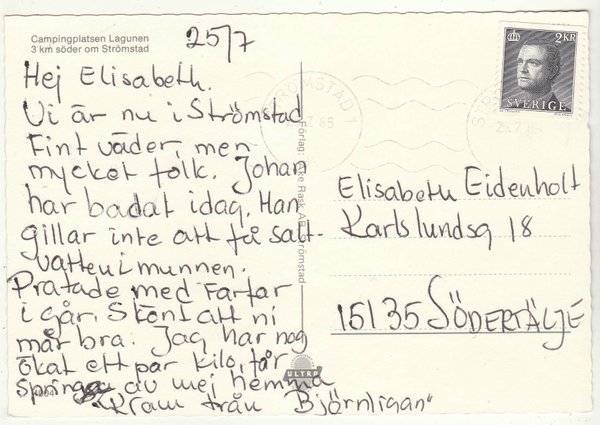 Campingplatsen Lagunen
3 km söder om Strömstad
25/7
Hej Elisabeth.
Vi är nu i Strömstad
Fint väder, men
mycket folk. Johan
har badat idag. Han
gillar inte att få salt-
vatten i munnen.
Pratade med Farfar
i går. Skönt att ni
mår bra. Jag har nog
ökat ett par kilo, får
springa av mej hemma
Kram från Björnligan"
4094
Förlag: Åke Rask AB, Strömstad
ULTRA
STRÖMSTAD 1
25.7.85
2 KR
SVERIGE
Elisabeth Eidenholt
Karlslundsg 18
151 35 SÖDERTÄLJE